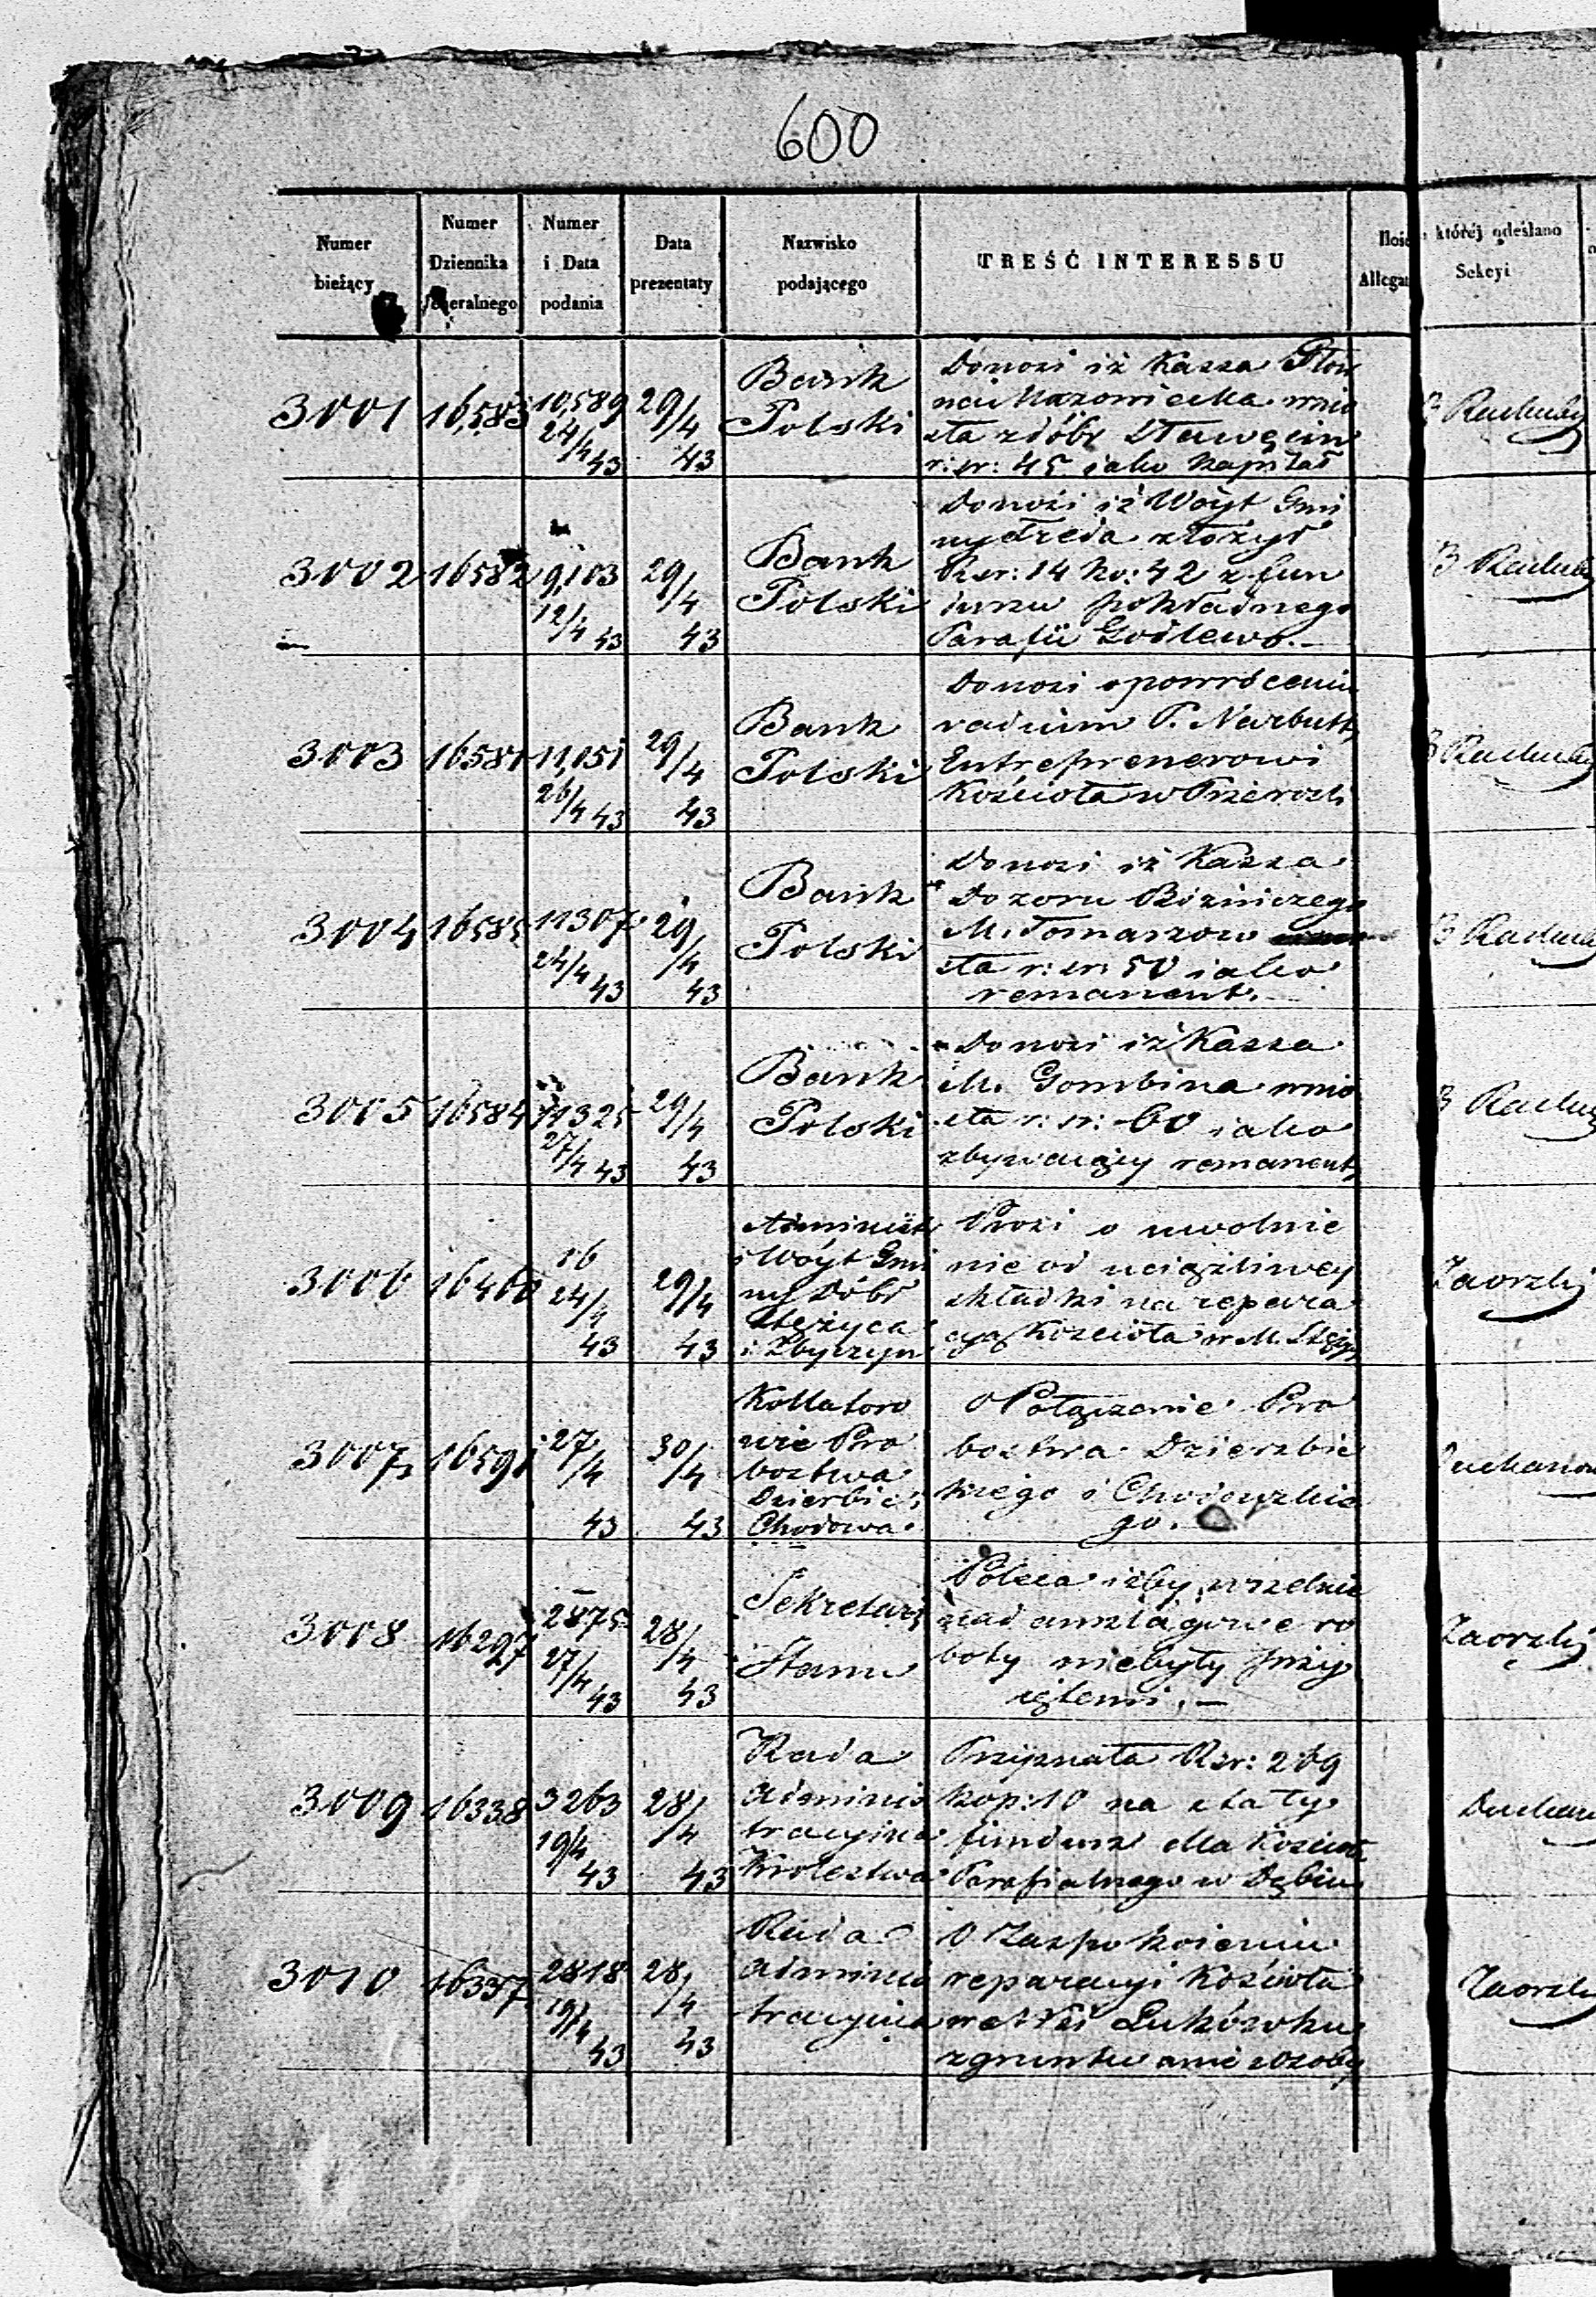 600
Numer bieżący
Numer Dziennika Jeneralnego
Numer i Data podania
Data prezentaty
Nazwisko podającego
TREŚĆ INTERESSU
Ilość Allegat
któréj odesłano Sekcyi
3001 16,583 10,589 24/4 43 29/4 43
Bank
Polski
Donosi iż Kassa
Mazowiecka wnio
sła z dóbr Sławęcin
r: sr: 45 iako Kapitał
3002 16582 9,103 12/4 43 29/4 43
Bank
Polski
Donosi iż Woyt Gmi
ny Freda złożył
Rsr: 14 ko: 42 z fun
duszu pokładnego
Parafii Godlewo. —
3003 16581 11,051 26/4 43 29/4 43
Bank
Polski
Donosi o powróceniu
vadium P. Narbutt
Entreprenerowi
Kościoła w Przerośli
3004 16585 11307 24/4 43 29/4 43
Bank
Polski
Donosi iż Kassa
Dozoru Bóżniczego
M. Tomaszow
sła r: sr: 50 iako
remanent. —
3005 16584 11325 27/4 43 29/4 43
Bank
Polski
Donosi iż Kassa
M. Gombina wnio
sła r: sr: 60 iako
zbywaiący remanent
3006 16460 16 24/4 43 29/4 43
Administ
i Woyt Gmi
ny Dóbr
Stężyca
i Zbyczyn
Prosi o uwolnie
nie od uciążliwey
składki na repera
cyą Kościoła w M. Stęży
Zaorski
3007 16591 27/4 43 30/4 43
Kollatoro
wie Pro
bostwa
Dzierbic i
Chodowa.
O Połączenie Pro
bostwa Dzierzbic
kiego i Chodowskie
go. —
3008 16297 2875 27/4 43 28/4 43
Sekretarz
Stanu
Poleca iżby wszelkie
nad anszlagowe ro
boty niebyły przy
iętemi. —
Zaorski
3009 16338 3263 19/4 43 28/4 43
Rada
Adminis
tracyjna
Królestwa
Przyznała Rsr: 269
kop: 10 na stały
fundusz dla Kościoła
Parafialnego w Dębiu
3010 16337 2818 19/4 43 28/4 43
Rada
Adminis
tracyjna
O Zaspokoieniu
reparacyi Kościoła
we Wsi Łukówku
z gruntu a nie z Osoby
Zaorski